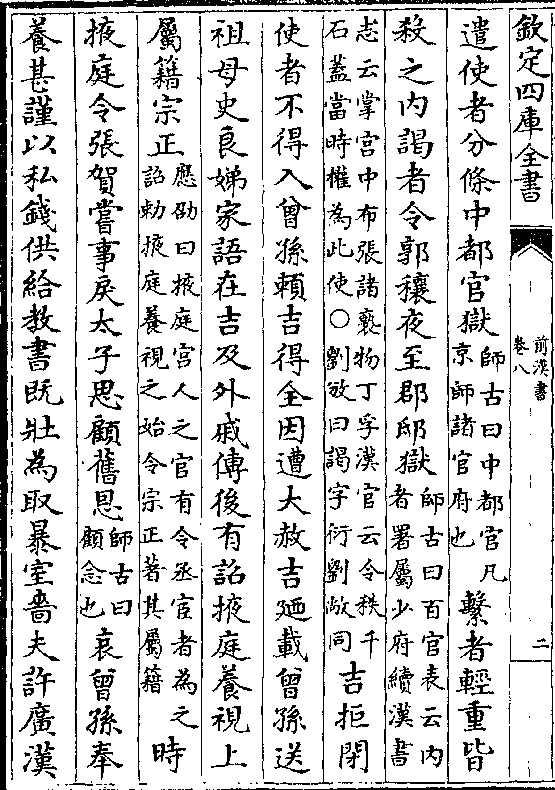 欽定四庫全書
前漢書
卷八
二
遣使者分條中都官獄師古曰中都官凡
京師諸官府也繫者輕重皆
殺之内謁者令郭穰夜至郡邸獄師古曰百官表云内
者署屬少府續漢書
志云掌宫中布張諸褻物丁孚漢官云令秩千
石蓋當時權為此使○劉攽曰謁字衍劉敞同吉拒閉
使者不得入曾孫頼吉得全因遭大赦吉廼載曾孫送
祖母史良娣家語在吉及外戚傳後有詔掖庭養視上
屬籍宗正應劭曰掖庭宫人之官有令丞宦者為之
詔勅掖庭養視之始令宗正著其屬籍時
掖庭令張賀嘗事戾太子思顧舊恩師古曰
顧念也哀曾孫奉
養甚謹以私錢供給教書既壯為取暴室嗇夫許廣漢